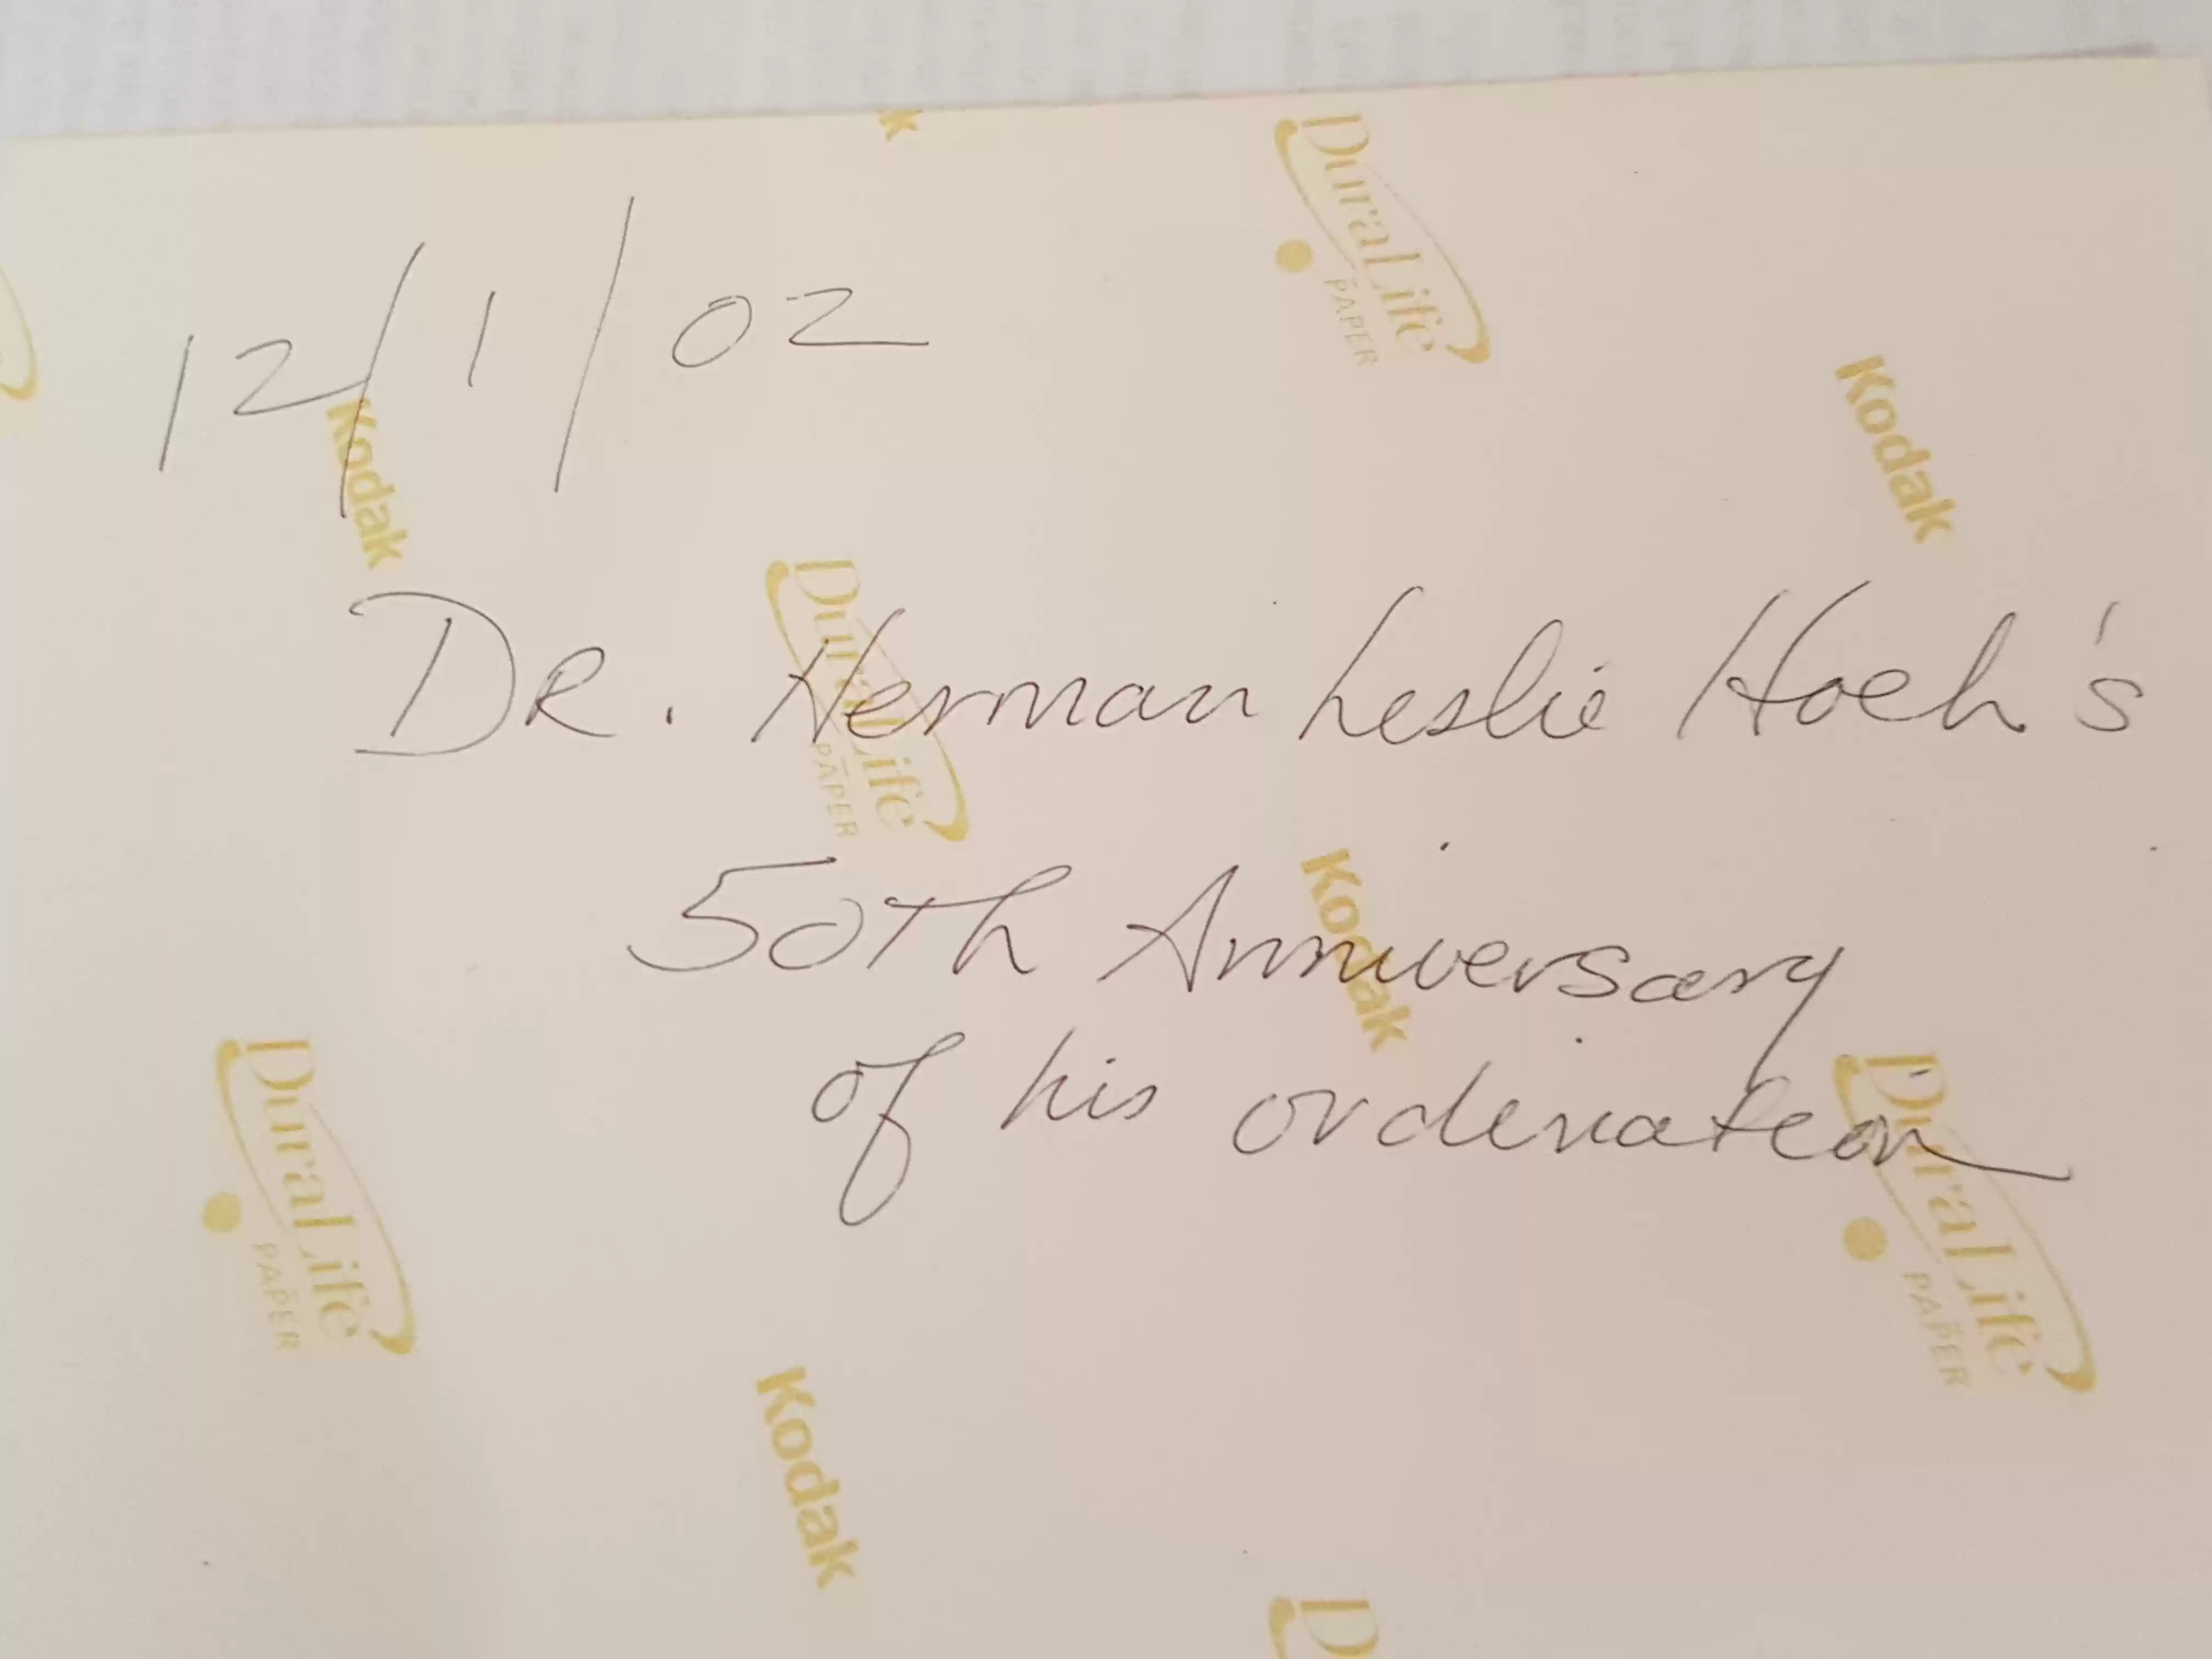 12/1/02
DR. Herman Leslie Hoeh's
50Th Anniversary
of his ordination
k
DuraLife
PAPER
Kodak
Kodak
DuraLife
PAPER
Kodak
DuraLife
PAPER
DuraLife
PAPER
Kodak
D